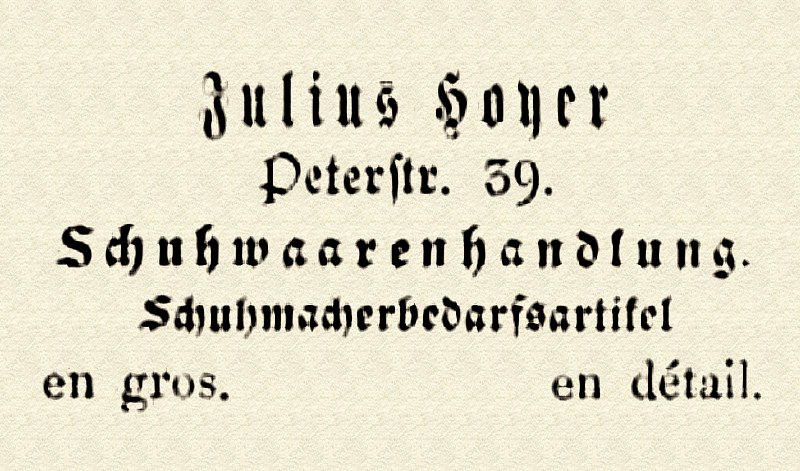 Julius Hoyer
Peterſtr. 39.
Schuhwaarenhandlung.
Schuhmacherbedarfsartikel
en gros. en détail.